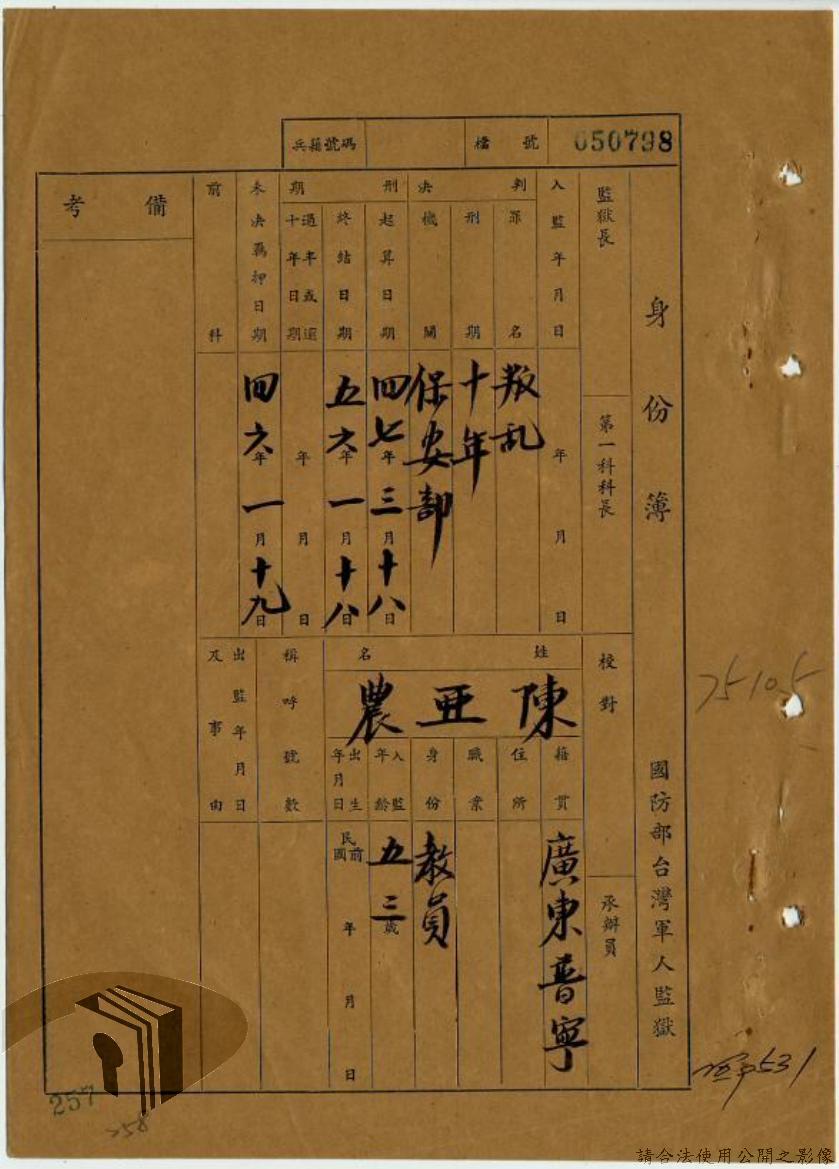 兵籍號碼
檔號 050798
身份簿
國防部台灣軍人監獄
監獄長
第一科科長
校對
承辦員
入監年月日
年 月 日
判決
罪名
叛乱
刑期
十年
機關
保安部
刑期
起算日期
四七年三月十八日
終結日期
五六年一月十八日
過半或還
十年日期
年 月 日
未決羈押日期
四六年一月十九日
前科
備考
姓名
陳亜農
籍貫
廣東普寧
住所
職業
身份
教員
入監年齡
五三歲
出生年月日
民國前
年 月 日
稱呼號數
出監年月日
及事由
75105
531
257
258
請合法使用公開之影像